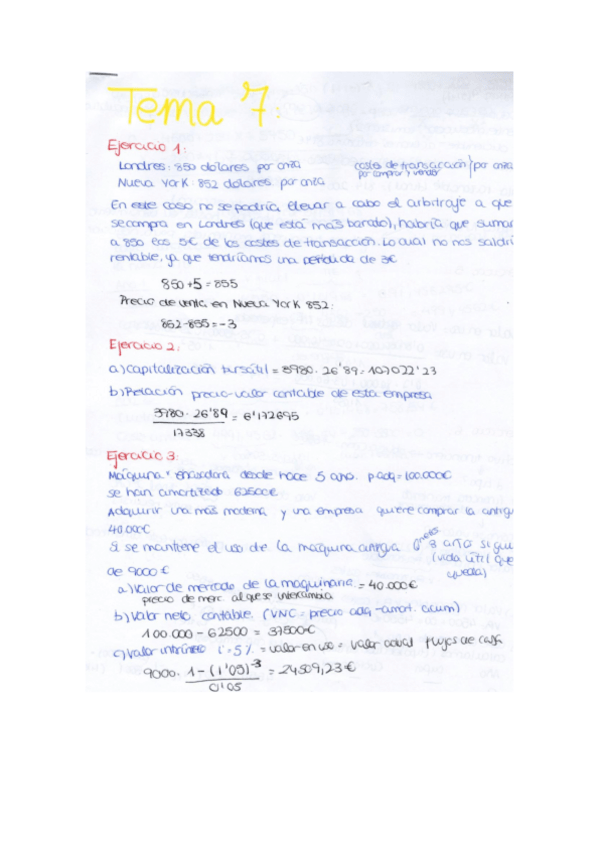 Tema 7:
Ejercicio 1:
Londres: 850 dólares por onza costes de transacción por onza
Nueva York: 852 dólares por onza por comprar y vender
En este caso no se podría llevar a cabo el arbitraje a que
se compra en Londres (que está más barato), habría que sumar
a 850 los 5€ de los costes de transacción. Lo cual no nos saldrí
rentable, ya que tendríamos una pérdida de 3€
850+5=855
Precio de venta en Nueva York 852:
852-855=-3
Ejercicio 2:
a) Capitalización bursátil = 3980. 26'89=107022'23
b) Relación precio-valor contable de esta empresa
3980. 26'89 = 6'172695
17338
Ejercicio 3:
Máquina desde hace 5 año. p adq=100.000€
se han amortizado 62500€
Adquirir una más moderna y una empresa quiere comprar la antigu
40.000€
Si se mantiene el uso de la maquina antigua 8 año sigu
(vida útil que
de 9000€ queda)
a) Valor de mercado de la maquinaria = 40.000€
precio de merc al que se intercambia
b) Valor neto contable. (VNC = precio adq -amort. acum)
100.000 - 62500 = 37500€
c) Valor intrínseco i=5% = valor en uso = valor actual flujos de caja
9000. 1-(1'05)-3 = 24509,23€
0'05